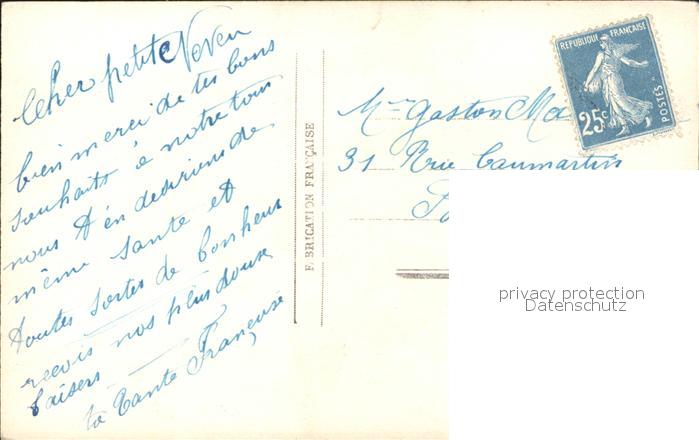 Cher petit Neveu
bien merci de tes bons
souhaits à notre tour
nous t'en desirions de
même santé et
toutes sortes de bonheur
recois nos plus doux
baisers
ta Tante Françoise
FABRICATION FRANÇAISE
REPUBLIQUE FRANÇAISE
25c
POSTES
Mr Gaston
31 Rue Caumartin
privacy protection
Datenschutz